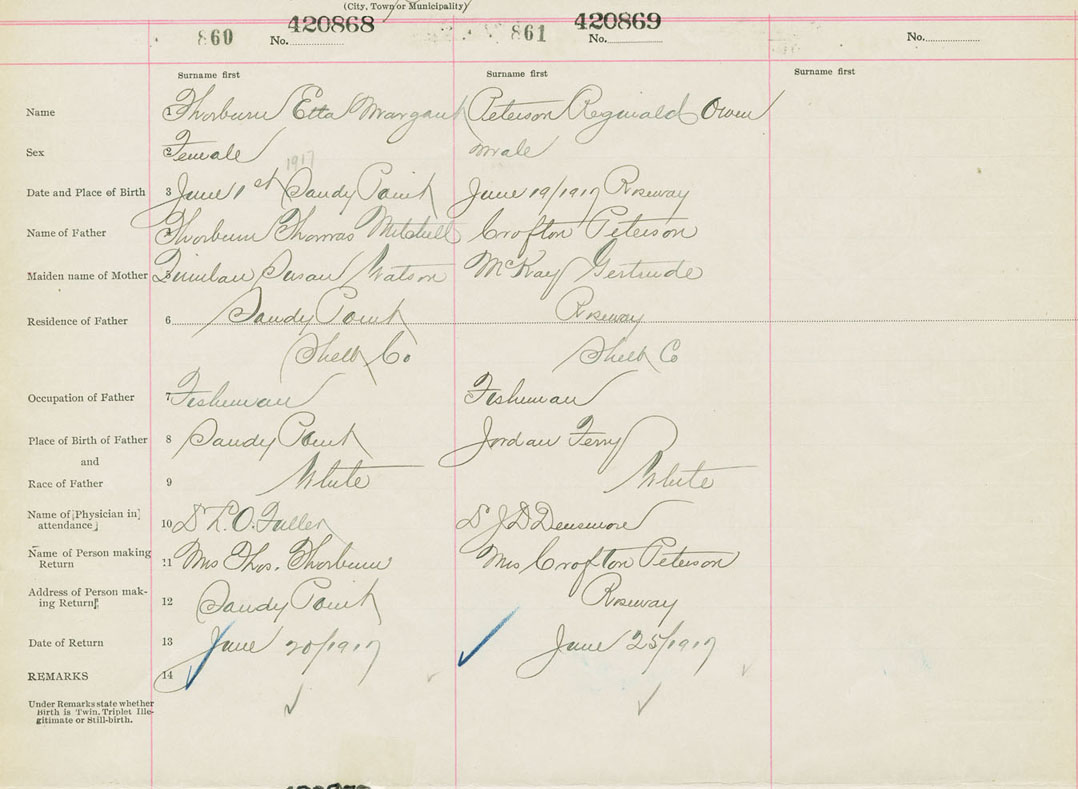 (City, Town or Municipality)
860 No. 420868 861 No. 420869 No.
Surname first Surname first Surname first
Name 1 Thorburn Etta Margaret Peterson Reginald Owen
Sex 2 Female Male
1917
Date and Place of Birth 3 June 1st Sandy Point June 19/1917 Roseway
Name of Father 4 Thorburn Thomas Mitchell Crofton Peterson
Maiden name of Mother 5 Susan Watson McKay Gertrude
Residence of Father 6 Sandy Point Roseway
Shelb Co Shelb Co
Occupation of Father 7 Fisherman Fisherman
Place of Birth of Father 8 Sandy Point Jordan Ferry
and
Race of Father 9 White White
Name of [Physician in attendance] 10 Dr L. O. Fuller Dr J D Densmore
Name of Person making Return 11 Mrs Thos. Thorburn Mrs Crofton Peterson
Address of Person making Return 12 Sandy Point Roseway
Date of Return 13 June 20/1917 June 25/1917
REMARKS 14
Under Remarks state whether
Birth is Twin, Triplet Ille-
gitimate or Still-birth.